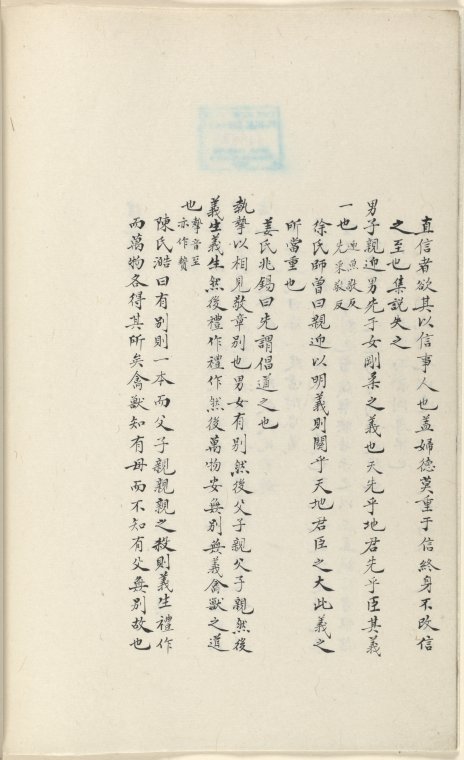 直信者欲其以信事人也蓋婦德莫重于信終身不改信
之至也集說失之
男子親迎男先于女剛柔之義也天先乎地君先乎臣其義
一也迎魚敬反先悉敬反
徐氏師曾曰親迎以明義則關乎天地君臣之大此義之
所當重也
姜氏兆錫曰先謂倡道之也
執摯以相見敬章別也男女有別然後父子親父子親然後
義生義生然後禮作禮作然後萬物安無別無義禽獸之道
也摯音至亦作贄
陳氏澔曰有別則一本而父子親親親之殺則義生禮作
而萬物各得其所矣禽獸知有母而不知有父無別故也